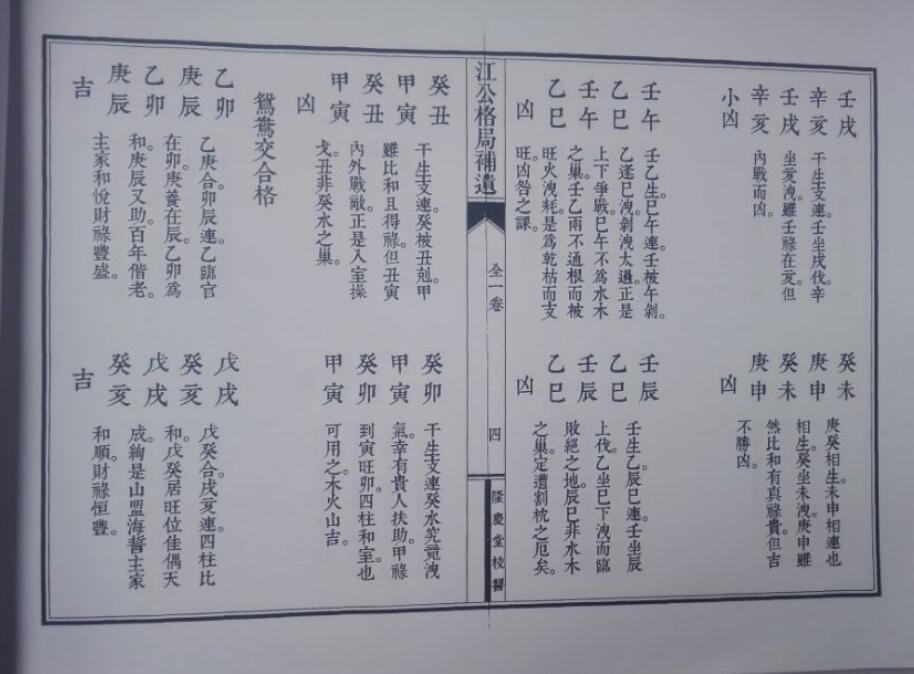 壬戌
辛亥
壬戌
辛亥
小凶
干生支連。壬坐戌伐。辛
坐亥洩。雖壬祿在亥。但
內戰而凶。
癸未
庚申
癸未
庚申
凶
庚癸相生。未申相連也
相生。癸坐未洩。庚申雖
然比和有真祿貴。但吉
不勝凶。
壬午
乙巳
壬午
乙巳
凶
壬乙生。巳午連。壬被午剝。
乙逢巳洩。剝洩太過。正是
上下爭戰。巳午不為水木
之巢。壬乙兩不通根而被
旺火洩耗。是為乾枯而支
旺。凶咎之課。
壬辰
乙巳
壬辰
乙巳
凶
壬生乙。辰巳連。壬坐辰
上伐。乙坐巳下洩而臨
敗絕之地。辰巳非水木
之巢。定遭割枕之厄矣。
江公格局補遺
全一卷
四
隆慶堂校
癸丑
甲寅
癸丑
甲寅
凶
干生支連。癸被丑剋。甲
雖比和且得祿。但丑寅
內外戰敵。正是入室操
戈。丑非癸水之巢。
癸卯
甲寅
癸卯
甲寅
干生支連。癸水究竟洩
氣。幸有貴人扶助。甲祿
到寅旺卯。四柱和室也
可用之。木火山吉。
鴛鴦交合格
乙卯
庚辰
乙卯
庚辰
吉
乙庚合。卯辰連。乙臨官
在卯。庚養在辰。乙卯為
和。庚辰又助。百年偕老。
主家和悅。財祿豐盛。
戊戌
癸亥
戊戌
癸亥
吉
戊癸合。戌亥連。四柱比
和。戊癸居旺位。佳偶天
成。絢是山盟海誓。主家
和順。財祿恒豐。